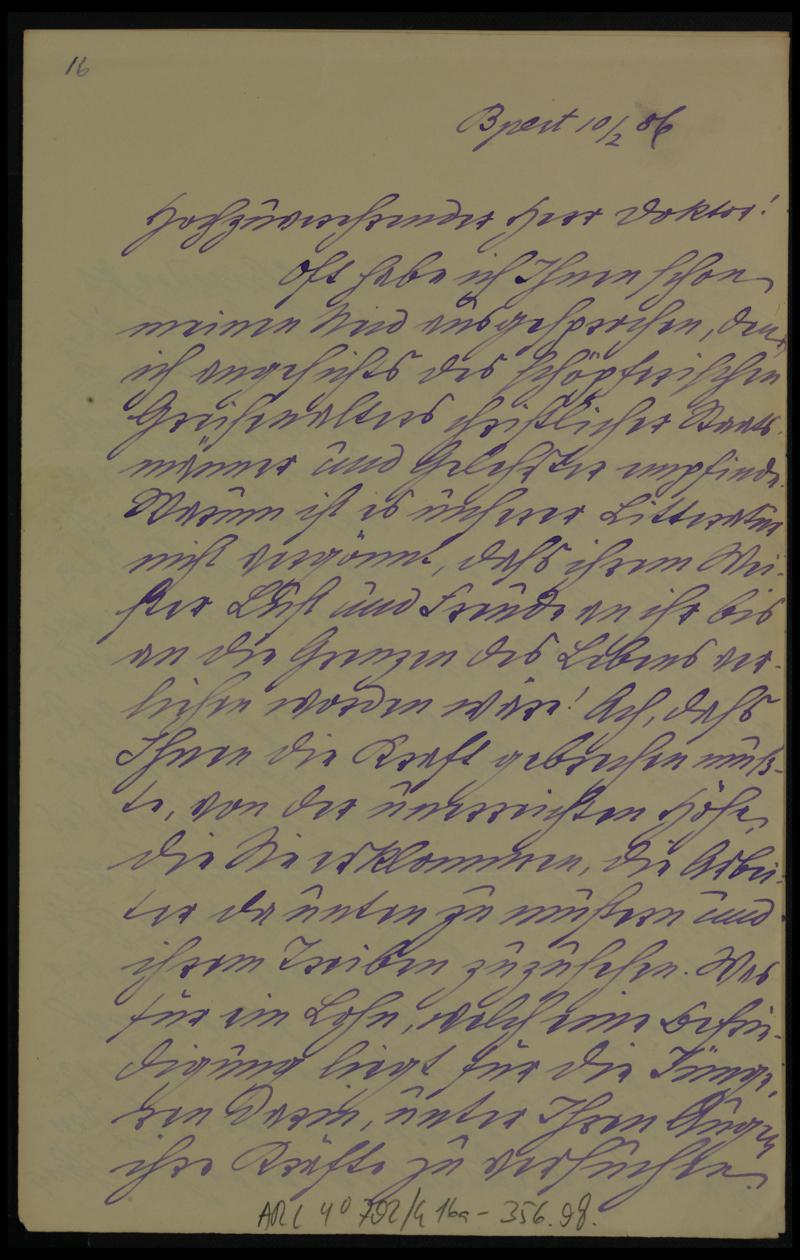 16
Bpest 10/2 86
Hochzuverehrender Herr Doktor!
Oft habe ich Ihnen schon
meinen Neid ausgesprochen, den
ich angesichts des schöpferischen
Greisenalters christlicher Staats-
männer und Gelehrter empfinde.
Warum ist es unserer Litteratur
nicht vergönnt, dass ihrem Mei-
ster Lust und Freude an ihr bis
an die Grenzen des Lebens ver-
liehen worden wäre! Ach, dass
Ihnen die Kraft gebrechen muss-
te, von der unerreichten Höhe,
die Sie erklommen, die Arbei-
ter da unten zu mustern und
ihrem Treiben zuzusehen. Was
für ein Lohn, welch eine Befrie-
digung liegt für die Jünge-
ren darin, unter Ihren Augen
ihre Kräfte zu versuchen.
ARC 4° 792/G 16a - 356.98.